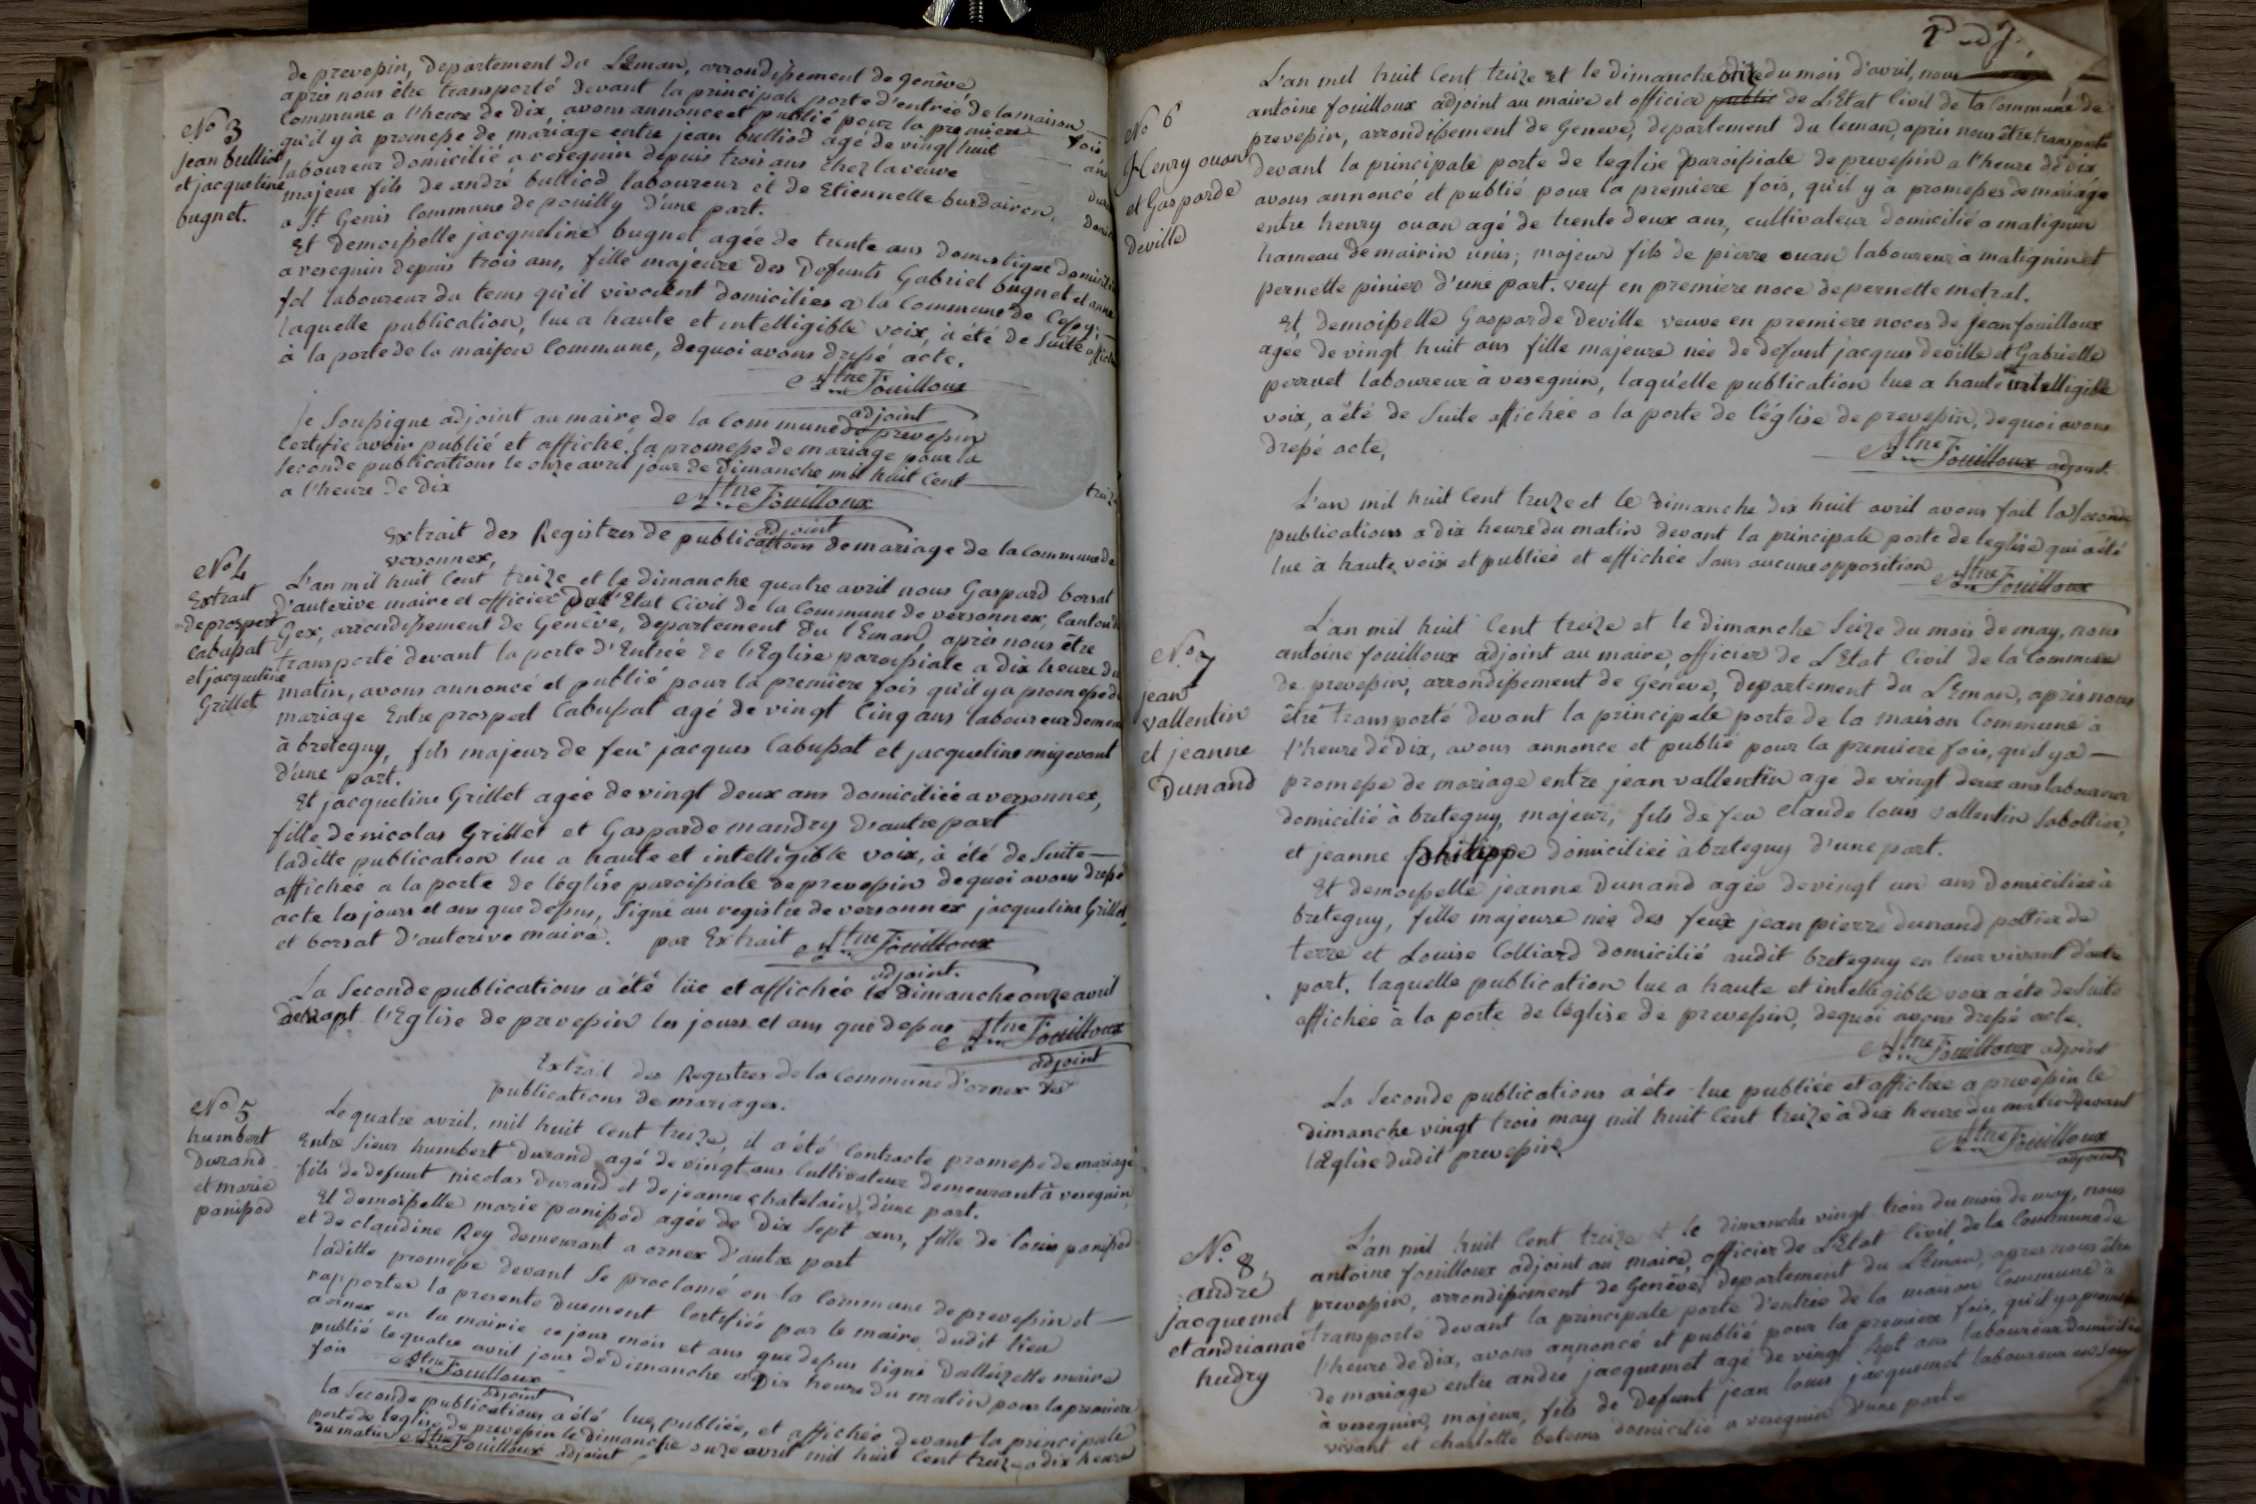 de prevessin, departement du Léman, arrondissement de genève
après nous être transporté devant la principale porte d'entrée de la maison
commune a l'heure de dix, avons annoncé et publié pour la premiere fois
No 3
jean bulliod
et jacqueline
bugnet.
qu'il y à promesse de mariage entre jean bulliod agé de vingt huit ans
laboureur domicilié a veseguin depuis trois ans chez la veuve
majeur fils de andré bulliod laboureur et de Etiennelle burdairon,
a St Genis Commune de pouilly d'une part.
Et demoiselle jacqueline bugnet agée de trente ans domestique
a veseguin depuis trois ans, fille majeure des defunts Gabriel bugnet et anne
fol laboureur du tems qu'il vivoient domiciliés a la Commune de Cessy;
laquelle publication, lue a haute et intelligible voix, à été de suite affichée
à la porte de la maison Commune, dequoi avons dressé acte.
Atne Fouilloux
adjoint
je soussigne adjoint au maire de la commune de prevessin
certifie avoir publié et affiché la promesse de mariage pour la
seconde publications le onze avril jour de dimanche mil huit cent treize
a l'heure de dix
Atne Fouilloux
adjoint
Extrait des Registres de publications de mariage de la commune de
versonnex,
No 4
Extrait
de prosper
Cabussat
et jacqueline
Grillet
L'an mil huit Cent treize et le dimanche quatre avril nous Gaspard borsat
d'auterive maire et officier de l'Etat Civil de la Commune de versonnex, Canton de
Gex, arrondissement de Genêve, departement du léman après nous être
transporté devant la porte d'Entrée de l'Eglise paroissiale a dix heure du
matin, avons annoncé et publié pour la premiere fois qu'il y a promesse de
mariage Entre prosper Cabussat agé de vingt Cinq ans laboureur
à breteguy, fils majeur de feu jacques Cabussat et jacqueline migevant
d'une part.
Et jacqueline Grillet agée de vingt deux ans domiciliée a versonnex,
fille de nicolas Grillet et Gasparde mandry d'autre part
laditte publication lue a haute et intelligible voix, à été de suite
affichée a la porte de léglise paroissiale de prevessin dequoi avons dressé
acte les jours et ans que dessus, signé au registre de versonnex jacqueline Grillet,
et borsat d'auterive maire. par Extrait Atne Fouilloux
adjoint.
La seconde publications a été lüe et affichée le dimanche onze avril
devant l'Eglise de prevessin les jours et ans que dessus Atne Fouilloux
adjoint
Extrait des Registres de la Commune d'ornex des
publications de mariages.
No 5
humbert
durand
et marie
panissod
Le quatre avril, mil huit Cent treize, il a été Contracte promesse de mariage
Entre sieur humbert durand agé de vingt ans Cultivateur demeurant à veseguin,
fils de defunt nicolas durand et de jeanne chatelain, d'une part.
Et demoiselle marie panissod agée de dix sept ans, fille de louis panissod
et de claudine Rey demeurant a ornex d'autre part
laditte promesse devant se proclamé en la Commune de prevessin et
rapporter la presente duement Certifiée par le maire dudit lieu
a ornex en la mairie ce jour mois et ans que dessus signé maire
publié le quatre avril jour de dimanche a dix heure du matin pour la premiere
fois Atne Fouilloux
adjoint
la seconde publications a été lue, publiée, et affichée devant la principale
porte de leglise de prevessin le dimanche onze avril mil huit Cent treize a dix heure
du matin Atne Fouilloux adjoint
L'an mil huit Cent treize et le dimanche onze du mois d'avril, nous
antoine fouilloux adjoint au maire et officier public de L'Etat Civil de la Commune de
No 6
henry ouan
et Gasparde
deville
prevessin, arrondissement de Geneve, departement du leman, après nous être transporté
devant la principale porte de leglise paroissiale de prevessin a l'heure de dix
avons annoncé et publié pour la premiere fois, qu'il y à promesses de mariage
entre henry ouan agé de trente deux ans, cultivateur domicilié a matignin
hameau de mairin unis; majeur fils de pierre ouan laboureur à matignin et
pernette pinier d'une part. veuf en premiere noce de pernette metral.
Et demoiselle Gasparde deville veuve en premiere noces de jean fouilloux
agée de vingt huit ans fille majeure née de defunt jacques deville et Gabrielle
perruet laboureur à veseguin, laqu'elle publication lue a haute intelligible
voix, a été de suite affichée a la porte de l'église de prevessin, dequoi avons
dressé acte,
Atne Fouilloux adjoint
L'an mil huit Cent treize et le dimanche dix huit avril avons fait la seconde
publications a dix heure du matin devant la principale porte de leglise qui a été
lue à haute voix et publiée et affichée sans aucune opposition
Atne Fouilloux
No 7
jean
vallentin
et jeanne
Dunand
L'an mil huit Cent treize et le dimanche seize du mois de may, nous
antoine fouilloux adjoint au maire, officier de L'Etat Civil de la Commune
de prevessin, arrondissement de Genêve, departement du Léman, après nous
être transporté devant la principale porte de la maison Commune à
l'heure de dix, avons annoncé et publié pour la premiere fois, qu'il y a
promesse de mariage entre jean vallentin agé de vingt deux ans laboureur
domicilié à breteguy, majeur, fils de feu claude louis vallentin sabottier,
et jeanne philippe domiciliée à breteguy d'une part.
Et demoiselle jeanne dunand agée de vingt un ans domiciliée à
breteguy, fille majeure née des feux jean pierre dunand pottier de
terre et Louise Colliard domicilié audit breteguy en leur vivant d'autre
part, laquelle publication lue a haute et intelligible voix a été de suite
affichée à la porte de léglise de prevessin, dequoi avons dressé acte.
Atne Fouilloux adjoint
La seconde publications a été lue publiée et affichée a prevessin le
dimanche vingt trois may mil huit Cent treize à dix heure du matin devant
l'Eglise dudit prevessin
Atne Fouilloux
adjoint
No. 8,
andré
jacquemet
et andrianne
hudry
L'an mil huit Cent treize et le dimanche vingt trois du mois de may, nous
antoine fouilloux adjoint au maire, officier de L'Etat Civil, de la Commune de
prevessin, arrondissement de Genêve, departement du Léman, après nous être
transporté devant la principale porte d'entrée de la maison Commune à
l'heure de dix, avons annoncé et publié pour la premiere fois, qu'il y a promesse
de mariage entre andré jacquemet agé de vingt sept ans laboureur domicilié
à veseguin, majeur, fils de defunt jean louis jacquemet laboureur en son
vivant et charlotte betems domicilié a veseguin d'une part